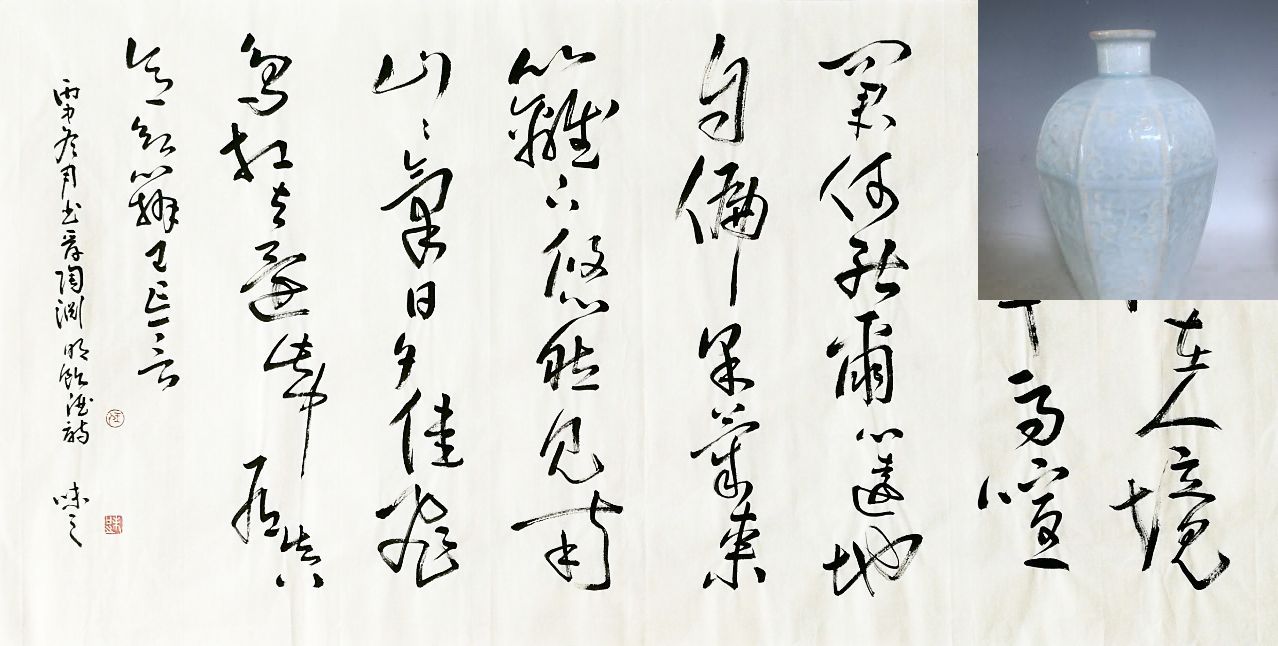 在人境
馬喧
問君何能爾心遠地
自偏采菊東
籬下悠然見南
山〻氣日夕佳飛
鳥相與還此中有真
意欲辨已忘言
丙申冬月书晋陶渊明飲酒詩 味之